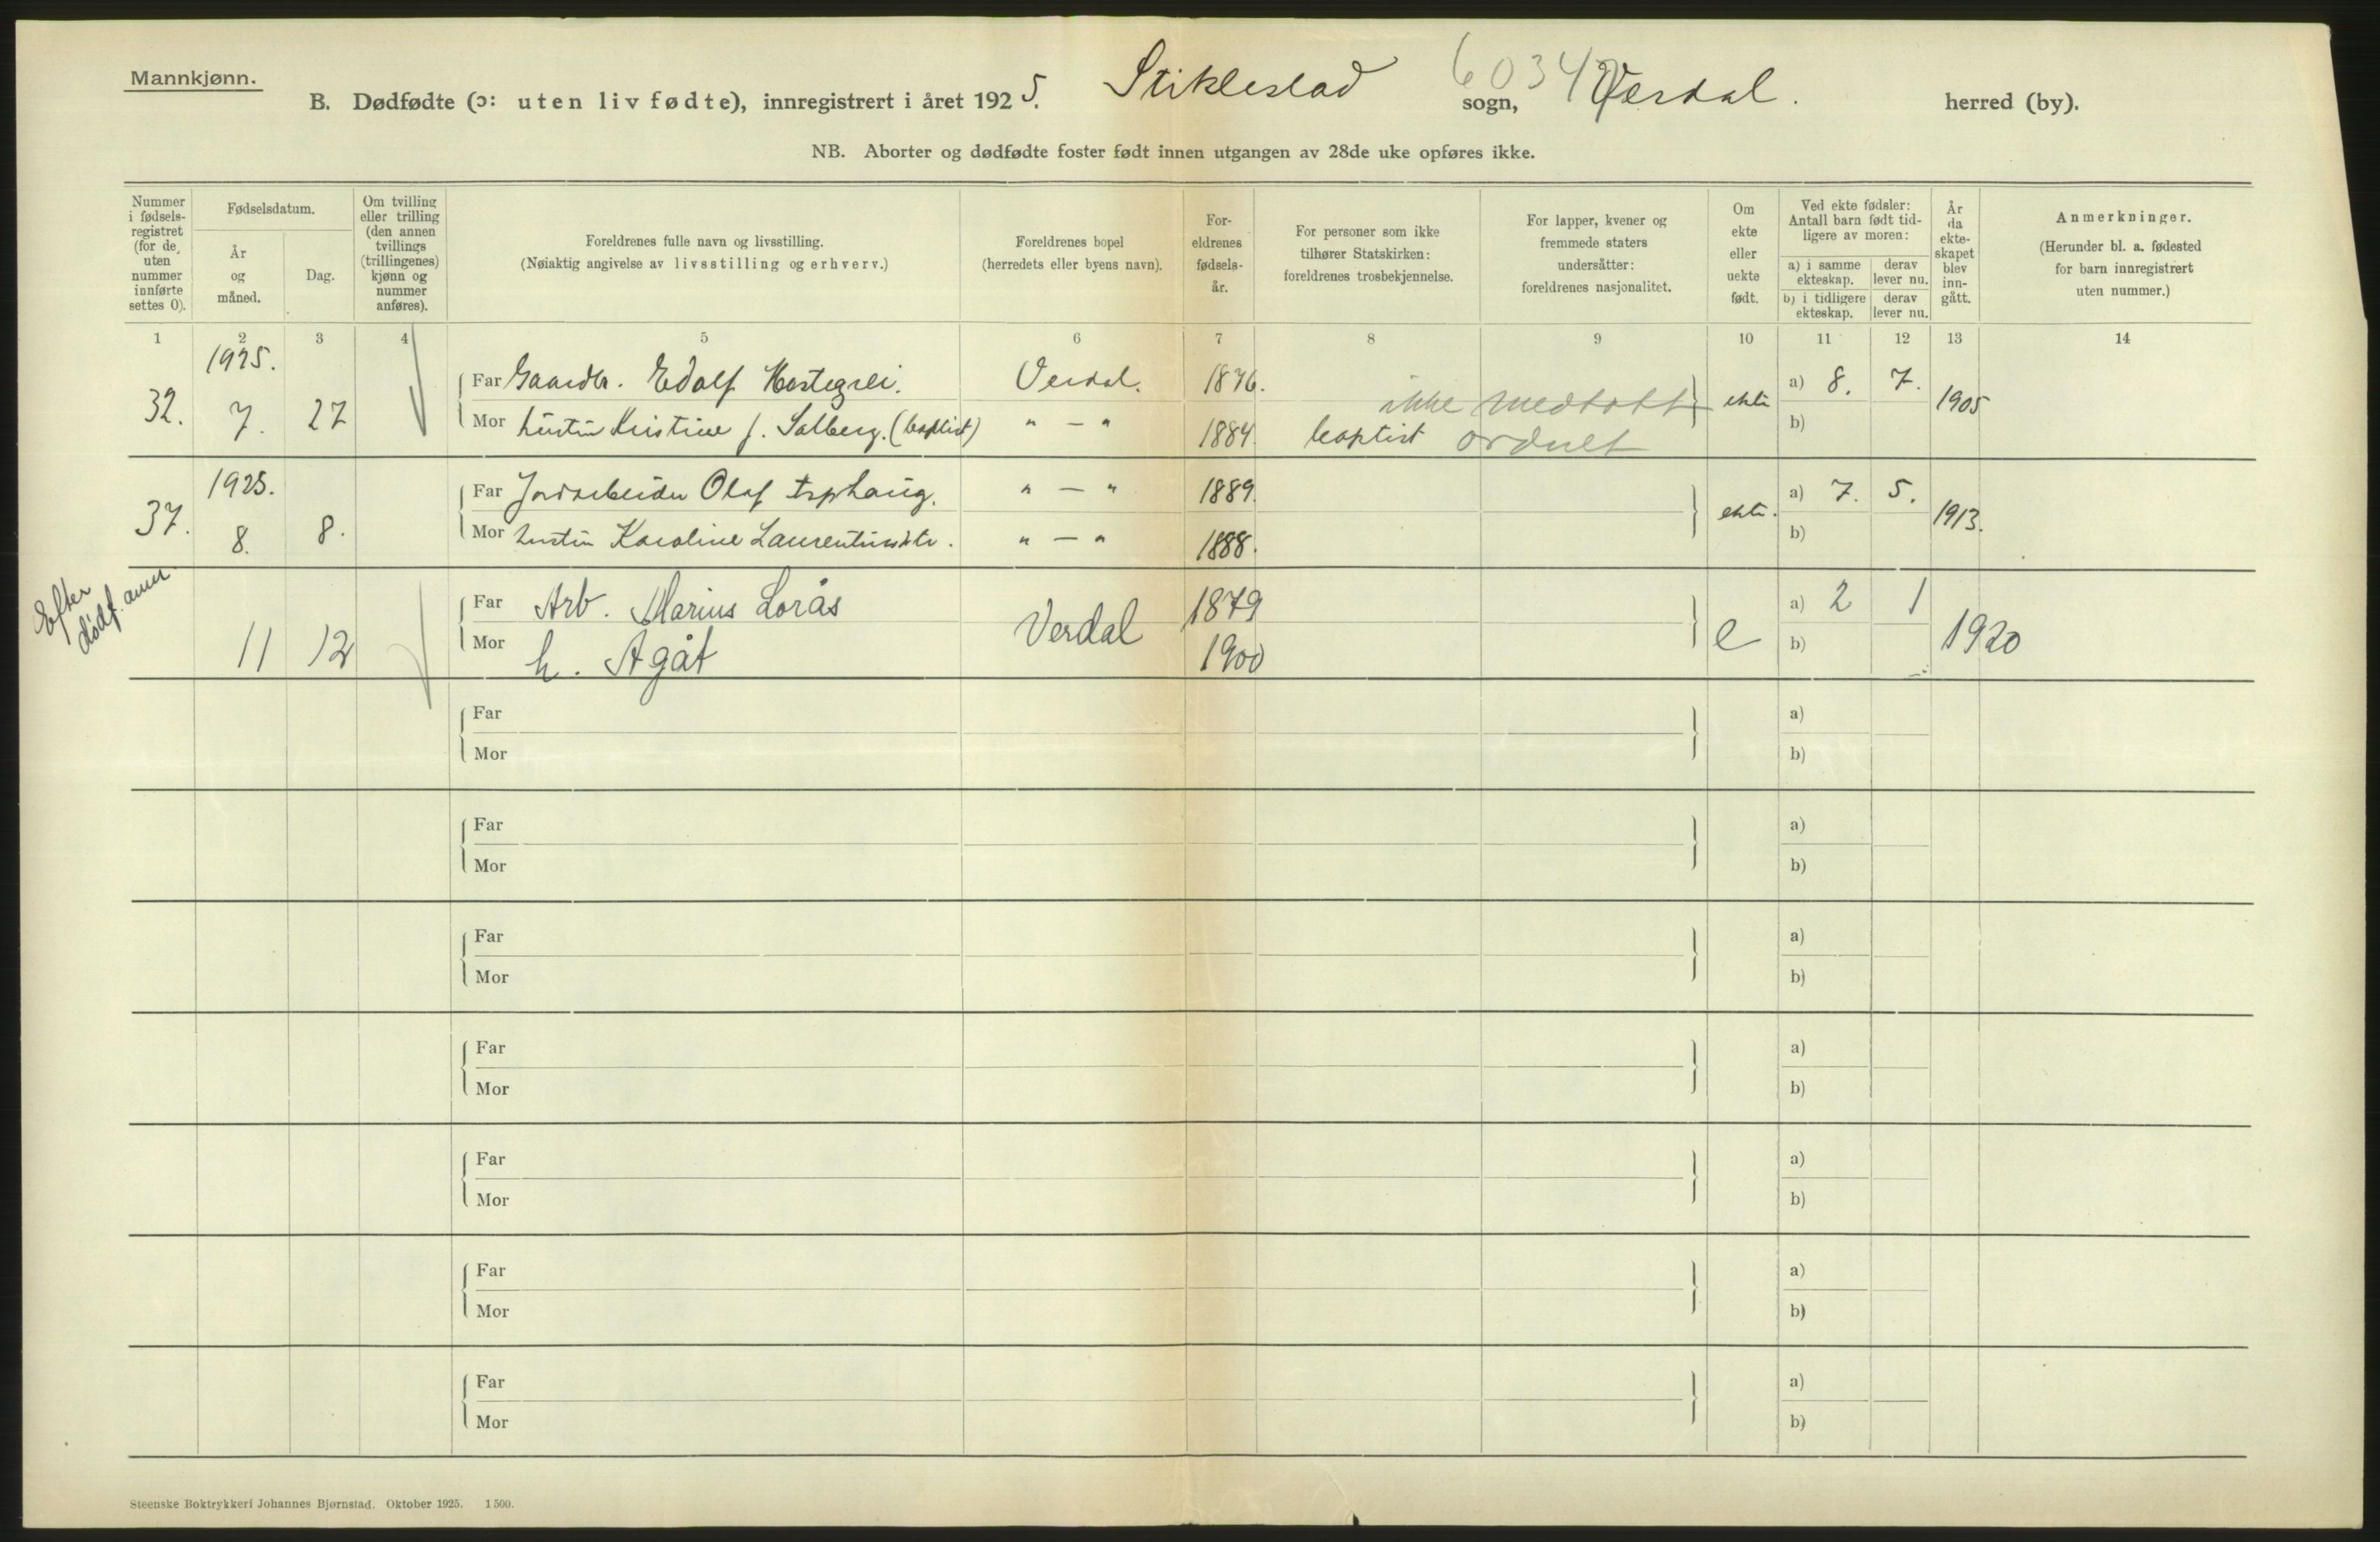 Mannkjønn.
B. Dødfødte (ɔ: uten liv fødte), innregistrert i året 1925. Stiklestad sogn, 6034 Verdal. herred (by).
NB. Aborter og dødfødte foster født innen utgangen av 28de uke opføres ikke.
Nummer i fødsels- registret (for de, uten nummer innførte settes 0).
Fødselsdatum.
År og måned.
Dag.
Om tvilling eller trilling (den annen tvillings (trillingenes) kjønn og nummer anføres).
Foreldrenes fulle navn og livsstilling. (Nøiaktig angivelse av livsstilling og erhverv.)
Foreldrenes bopel (herredets eller byens navn).
For- eldrenes fødsels- år.
For personer som ikke tilhører Statskirken: foreldrenes trosbekjennelse.
For lapper, kvener og fremmede staters undersåtter: foreldrenes nasjonalitet.
Om ekte eller uekte født.
Ved ekte fødsler: Antall barn født tid- ligere av moren:
a) i samme ekteskap. derav lever nu.
b) i tidligere ekteskap. derav lever nu.
År da ekte- skapet blev inn- gått.
Anmerkninger. (Herunder bl. a. fødested for barn innregistrert uten nummer.)
1 2 3 4 5 6 7 8 9 10 11 12 13 14
32. 1925. 7. 27
Far Gaardbr. Edolf Verdal. 1876. ikke medtatt ekte a) 8. 7. 1905
Mor hustru Kristine f. Salberg. (baptist) " — " 1884. baptist ordnet b)
37. 1925. 8. 8.
Far Jordarbeider Olaf " — " 1889. ekte. a) 7. 5. 1913.
Mor hustru Karoline " — " 1888. b)
Efter dødf. anm
11 12
Far Arb. Marius Lorås Verdal 1879 e a) 2 1 1920
Mor h. Agåt 1900 b)
Far a)
Mor b)
Far a)
Mor b)
Far a)
Mor b)
Far a)
Mor b)
Far a)
Mor b)
Far a)
Mor b)
Far a)
Mor b)
Steenske Boktrykkeri Johannes Bjørnstad. Oktober 1925. 1500.